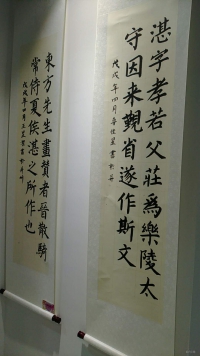 東方先生畫贊者晉散騎
常侍夏侯湛之所作也
戊戌年四月
湛字孝若父莊為樂陵太
守因来覲省遂作斯文
戊戌年四月